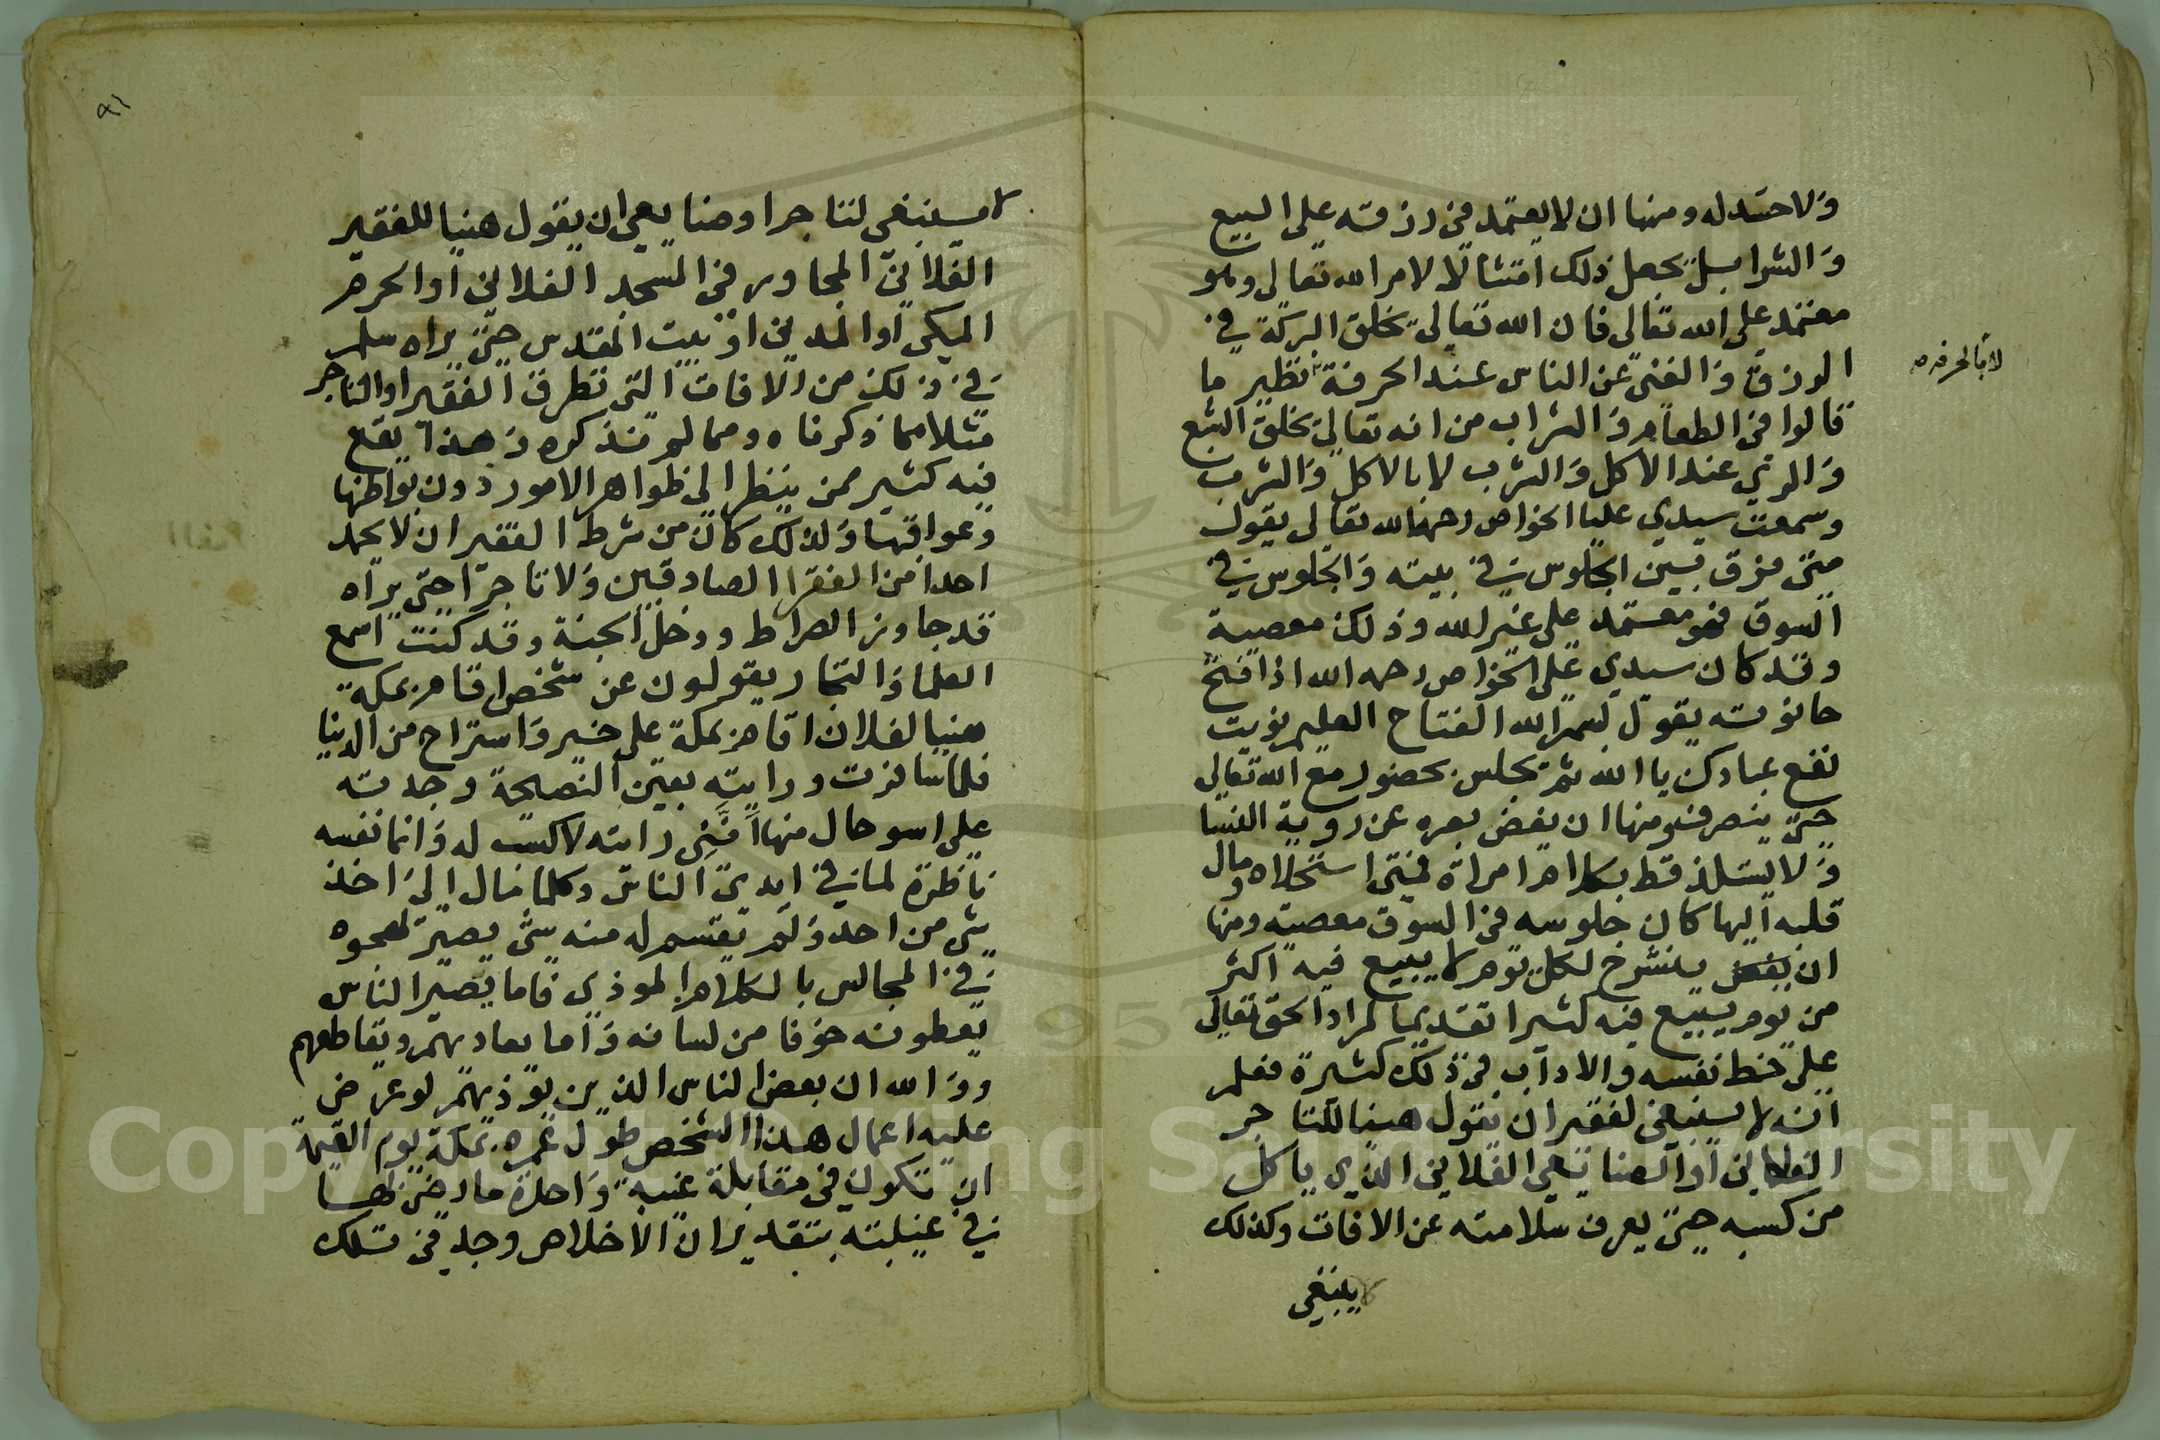 ولا حتد له ومنها ان لا يعتمد في رزقه على البيع
والشرا بل يجعل ذلك امتثالا لامر الله تعالى وهو
معتمد على الله تعالى فان الله تعالى يخلق البركة في
الرزق والغنى عن الناس عند الحرفة نظير ما
لا بالحرفه
قالوا في الطعام والشراب من انه تعالى يخلق الشبع
والري عند الاكل والشرب لا بالاكل والشرب
وسمعت سيدي عليا الخواص رحمه الله تعالى يقول
متى فرق بين الجلوس في بيته والجلوس في
السوق فهو معتمد على غير الله وذلك معصية
وقد كان سيدي على الخواص رحمه الله اذا فتح
حانوته يقول بسم الله الفتاح العليم نويت
نفع عبادك يا الله ثم يجلس بحضور مع الله تعالى
حتى ينصرف ومنها ان يغض بصره عن روية النسا
ولا يستلذ قط بكلام امراة فمتى استحلاه ومال
قلبه اليها كان جلوسه في السوق معصية ومنها
ان ينشرح لكل يوم لا يبيع فيه اكثر
من يوم يبيع فيه كثيرا تقديما لمراد الحق تعالى
على حظ نفسه والاداب في ذلك كثيرة فعلم
انه لا ينبغي لفقير ان يقول هنيا للتاجر
الفلاني او الصنايعي الفلاني الذي ياكل
من كسبه حتى يعرف سلامته عن الافات وكذلك
لا ينبغي
٩١
لا ينبغي لتاجر او صنايعي ان يقول هنيا للفقير
الفلاني المجاور في المسجد الفلاني او الحرم
المكي او المدني او بيت المقدس حتى يراه سلم
في ذلك من الافات التي تطرق الفقير او التاجر
مثلا مما ذكرناه ومما لم نذكره وهذا يقع
فيه كثير ممن ينظر الى ظواهر الامور دون بواطنها
وعواقبها ولذلك كان من شرط الفقير ان لا يحمد
احدا من الفقرا الصادقين ولا تاجرا حتى يراه
قد جاوز الصراط ودخل الجنة وقد كنت اسمع
العلما والتجار يقولون عن شخص اقام بمكة
هنيا لفلان اقام بمكة على خير واستراح من الدنيا
فلما سافرت ورايته بعين النصيحة وجدته
على اسو حال منها انني رايته لا كسب له وانما نفسه
ناظرة لما في ايدي الناس وكلما مال الى اخذ
شي من احد ولم يقسم له منه شي يصير يهجوه
في المجالس بالكلام الموذي فاما يصير الناس
يعطونه خوفا من لسانه واما يعاديهم ويقاطعهم
ووالله ان بعض الناس الذين يوذيهم لو عرض
عليه اعمال هذا الشخص طول عمره بمكة يوم القيمة
ان تكون في مقابلة غيبة واحدة ما رضي بها
في غيبته بتقدير ان الاخلاص وجد في تلك